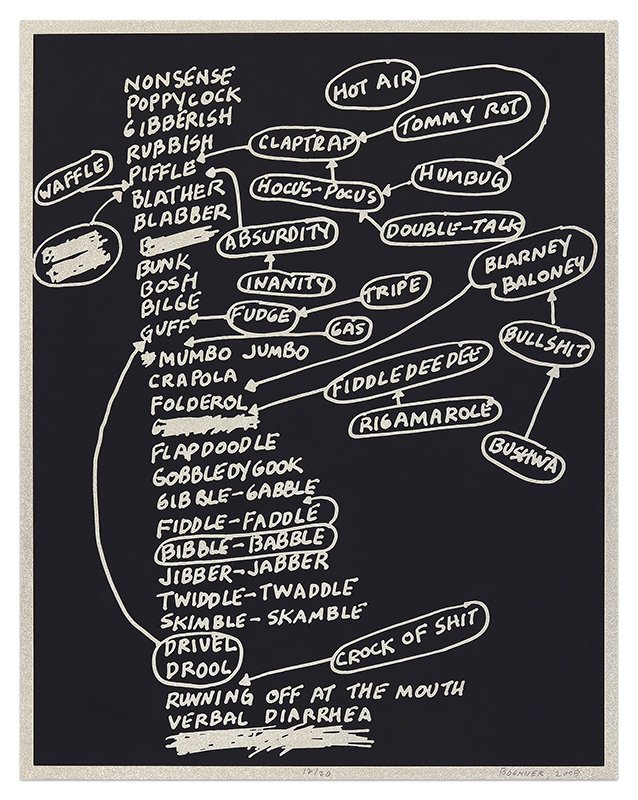 NONSENSE
POPPYCOCK
GIBBERISH
RUBBISH
PIFFLE
BLATHER
BLABBER
BUNK
BOSH
BILGE
GUFF
MUMBO JUMBO
CRAPOLA
FOLDEROL
FLAPDOODLE
GOBBLEDYGOOK
GIBBLE-GABBLE
FIDDLE-FADDLE
BIBBLE-BABBLE
JIBBER-JABBER
TWIDDLE-TWADDLE
SKIMBLE-SKAMBLE
DRIVEL
DROOL
RUNNING OFF AT THE MOUTH
VERBAL DIARRHEA
WAFFLE
HOT AIR
TOMMY ROT
CLAPTRAP
HUMBUG
HOCUS-POCUS
DOUBLE-TALK
ABSURDITY
INANITY
BLARNEY
BALONEY
TRIPE
FUDGE
GAS
BULLSHIT
FIDDLEDEEDEE
RIGAMAROLE
BUSHWA
CROCK OF SHIT
12/20
BOCHNER, 2009